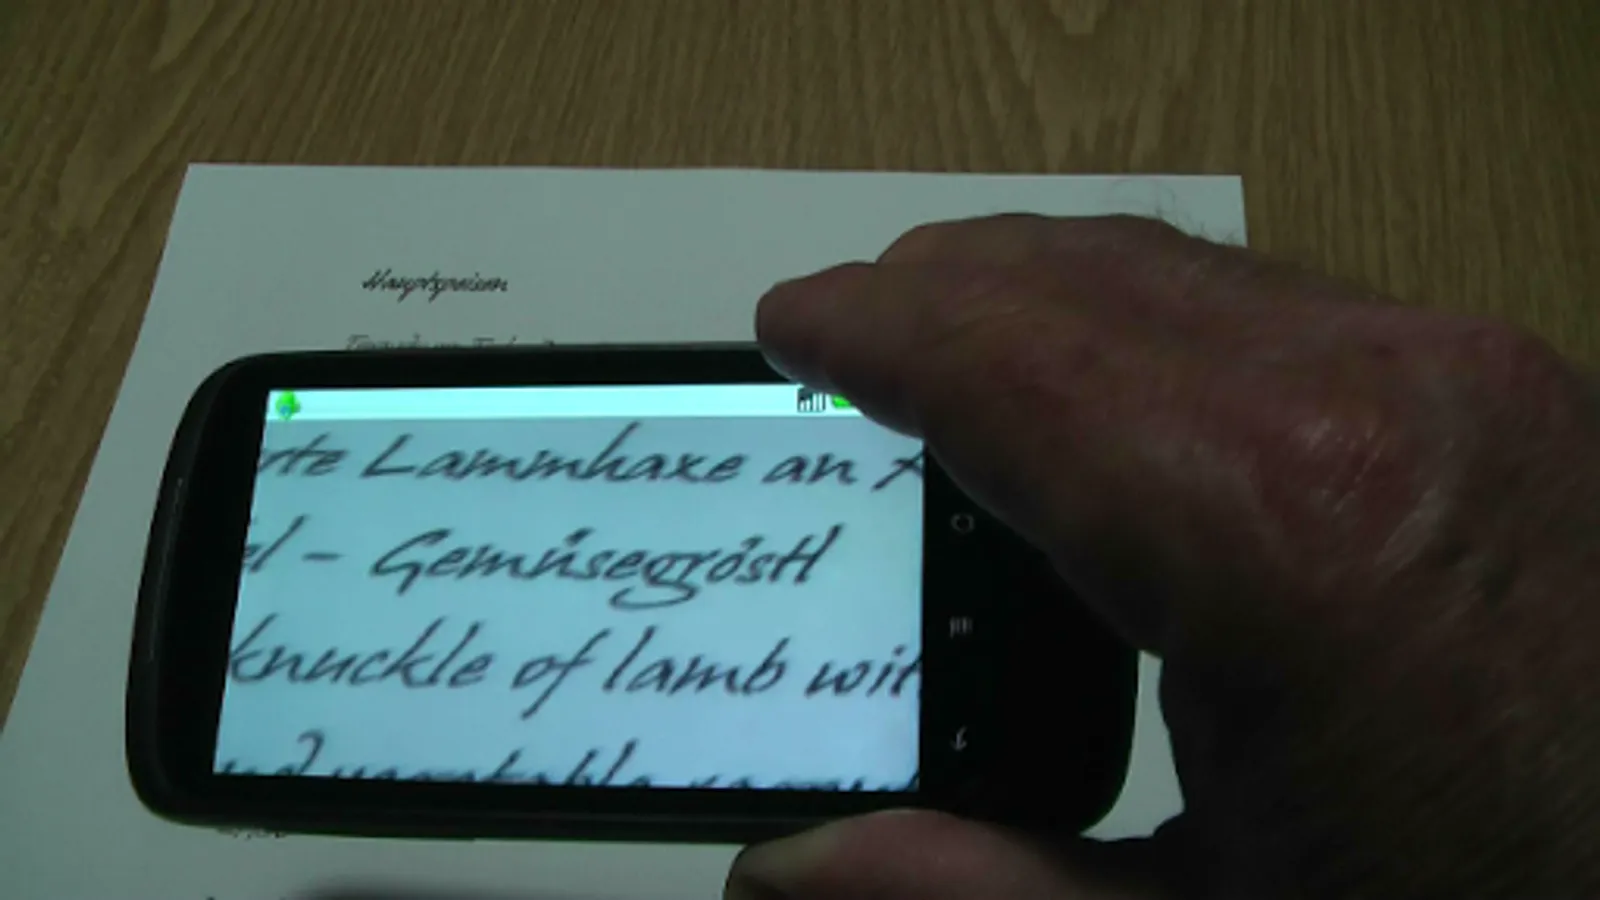 Hauptspeisen
rte Lammhaxe an
el - Gemüsegröstl
knuckle of lamb wit
vegetable